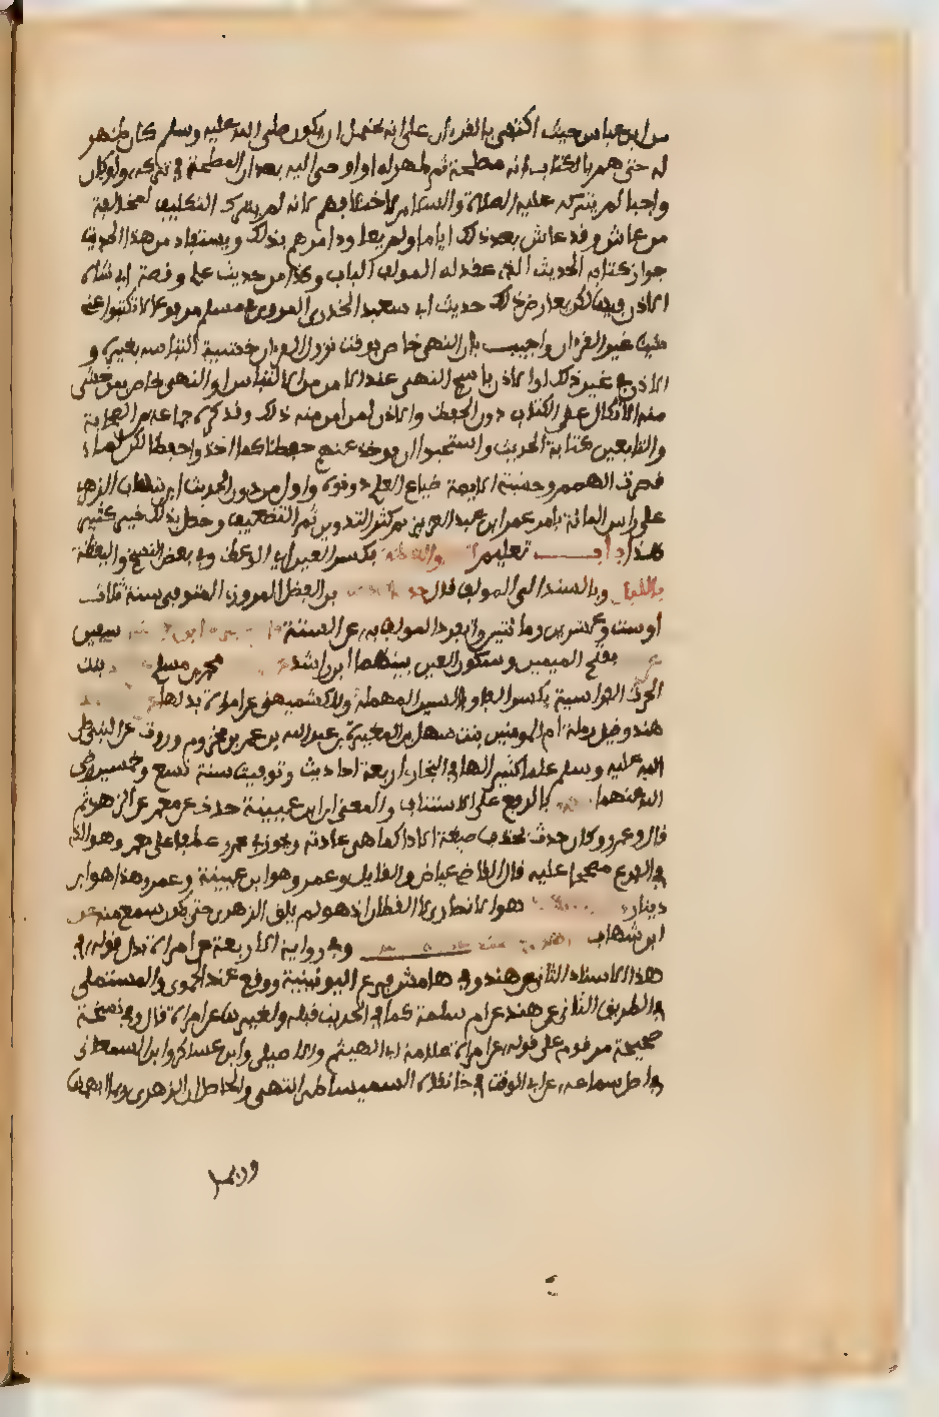 من ابن عباس حيث اكتفى بالقرءان على انه يحتمل ان يكون صلى الله عليه وسلم كان ظهر
له حين هم بالكتاب انه مصلحة ثم ظهر له او اوحى اليه بعد ان المصلحة في تركه ولو كان
واجبا لم يتركه عليه الصلاة والسلام لاختلافهم لانه لم يترك التكليف لمخالفة
من خالف وقد عاش بعد ذلك اياما ولم يعاود امرهم بذلك ويستفاد من هذا الحديث
جواز كتابة الحديث الذي عقد له المولف الباب وكذا من حديث علي وقصة ابي شاه
الاذن فيها لكن يعارض ذلك حديث ابي سعيد الخدري المروي في مسلم مرفوعا لا تكتبوا عني
شيئا غير القرءان واجيب بان النهي خاص بوقت نزول القرءان خشية التباسه بغيره و
الاذن في غير ذلك او الاذن ناسخ للنهي عند الامن من الالتباس او النهي خاص بمن خشي
منه الاتكال على الكتاب دون الحفظ والاذن لمن امن منه ذلك وقد كره جماعة من الصحابة
والتابعين كتابة الحديث واستحبوا ان يوخذ عنهم حفظا كما اخذوا حفظا لكن لما
قصرت الهمم وخشيت الايمة ضياع العلم دونوه واول من دون الحديث ابن شهاب الزهري
على راس المائة بامر عمر ابن عبد العزيز ثم كثر التدوين ثم التصنيف وحصل بذلك خير كثير
هذا باب تعليم والعظة بكسر العين اي الوعظ وفي بعض النسخ واليقظة
بالليل وبالسند الى المولف قال بن الفضل المروزي المتوفى سنة ثلاث
او ست وعشرين ومائتين وانفرد المولف به عن الستة
بفتح الميمين وسكون العين بينهما ابن راشد بنت
الحرث الفراسية بكسر الفاء والسين المهملة وللكشميهني عن امراة بدلها
هند وقيل رملة ام المومنين بنت سهل بن المغيرة بن عبد الله بن عمر بن مخزوم وروت عن النبي صلى
الله عليه وسلم علما كثيرا لها في البخاري اربعة احاديث وتوفيت سنة تسع وخمسين رضي
الله عنها بالرفع على الاستئناف والمعنى ان ابن عيينة حدث عن معمر عن الزهري ثم
قال وعمرو وكان حدث بحذف صيغة الاداء كما هي عادته ويجوز في عمرو عطفا على معمر وهو الذي
في الفرع مصححا عليه قال القاضي عياض والقايل وعمرو هو ابن عيينة وعمرو هذا هو ابن
دينار هو الانصاري لا القطان اذ هو لم يلق الزهري حتى يكون سمع منه عن
ابن شهاب وفي رواية الاربعة عن امراة بدل قوله في
هذا الاسناد الثاني عن هند وفي هامش فرع اليونينية ووقع عند الحموي والمستملي
في الطريق الثاني عن هند عن ام سلمة كما في الحديث قبله ولغيرهما عن امراة قال وفي نسخة
صحيحة مرقوم على قوله عن امراة علامة ابي الهيثم والاصيلي وابن عساكر وابن السمعاني
في اصل سماعه عن ابي الوقت في خانقاه السميساطي انتهى والحاصل ان الزهري ربما ابهمها
وربما